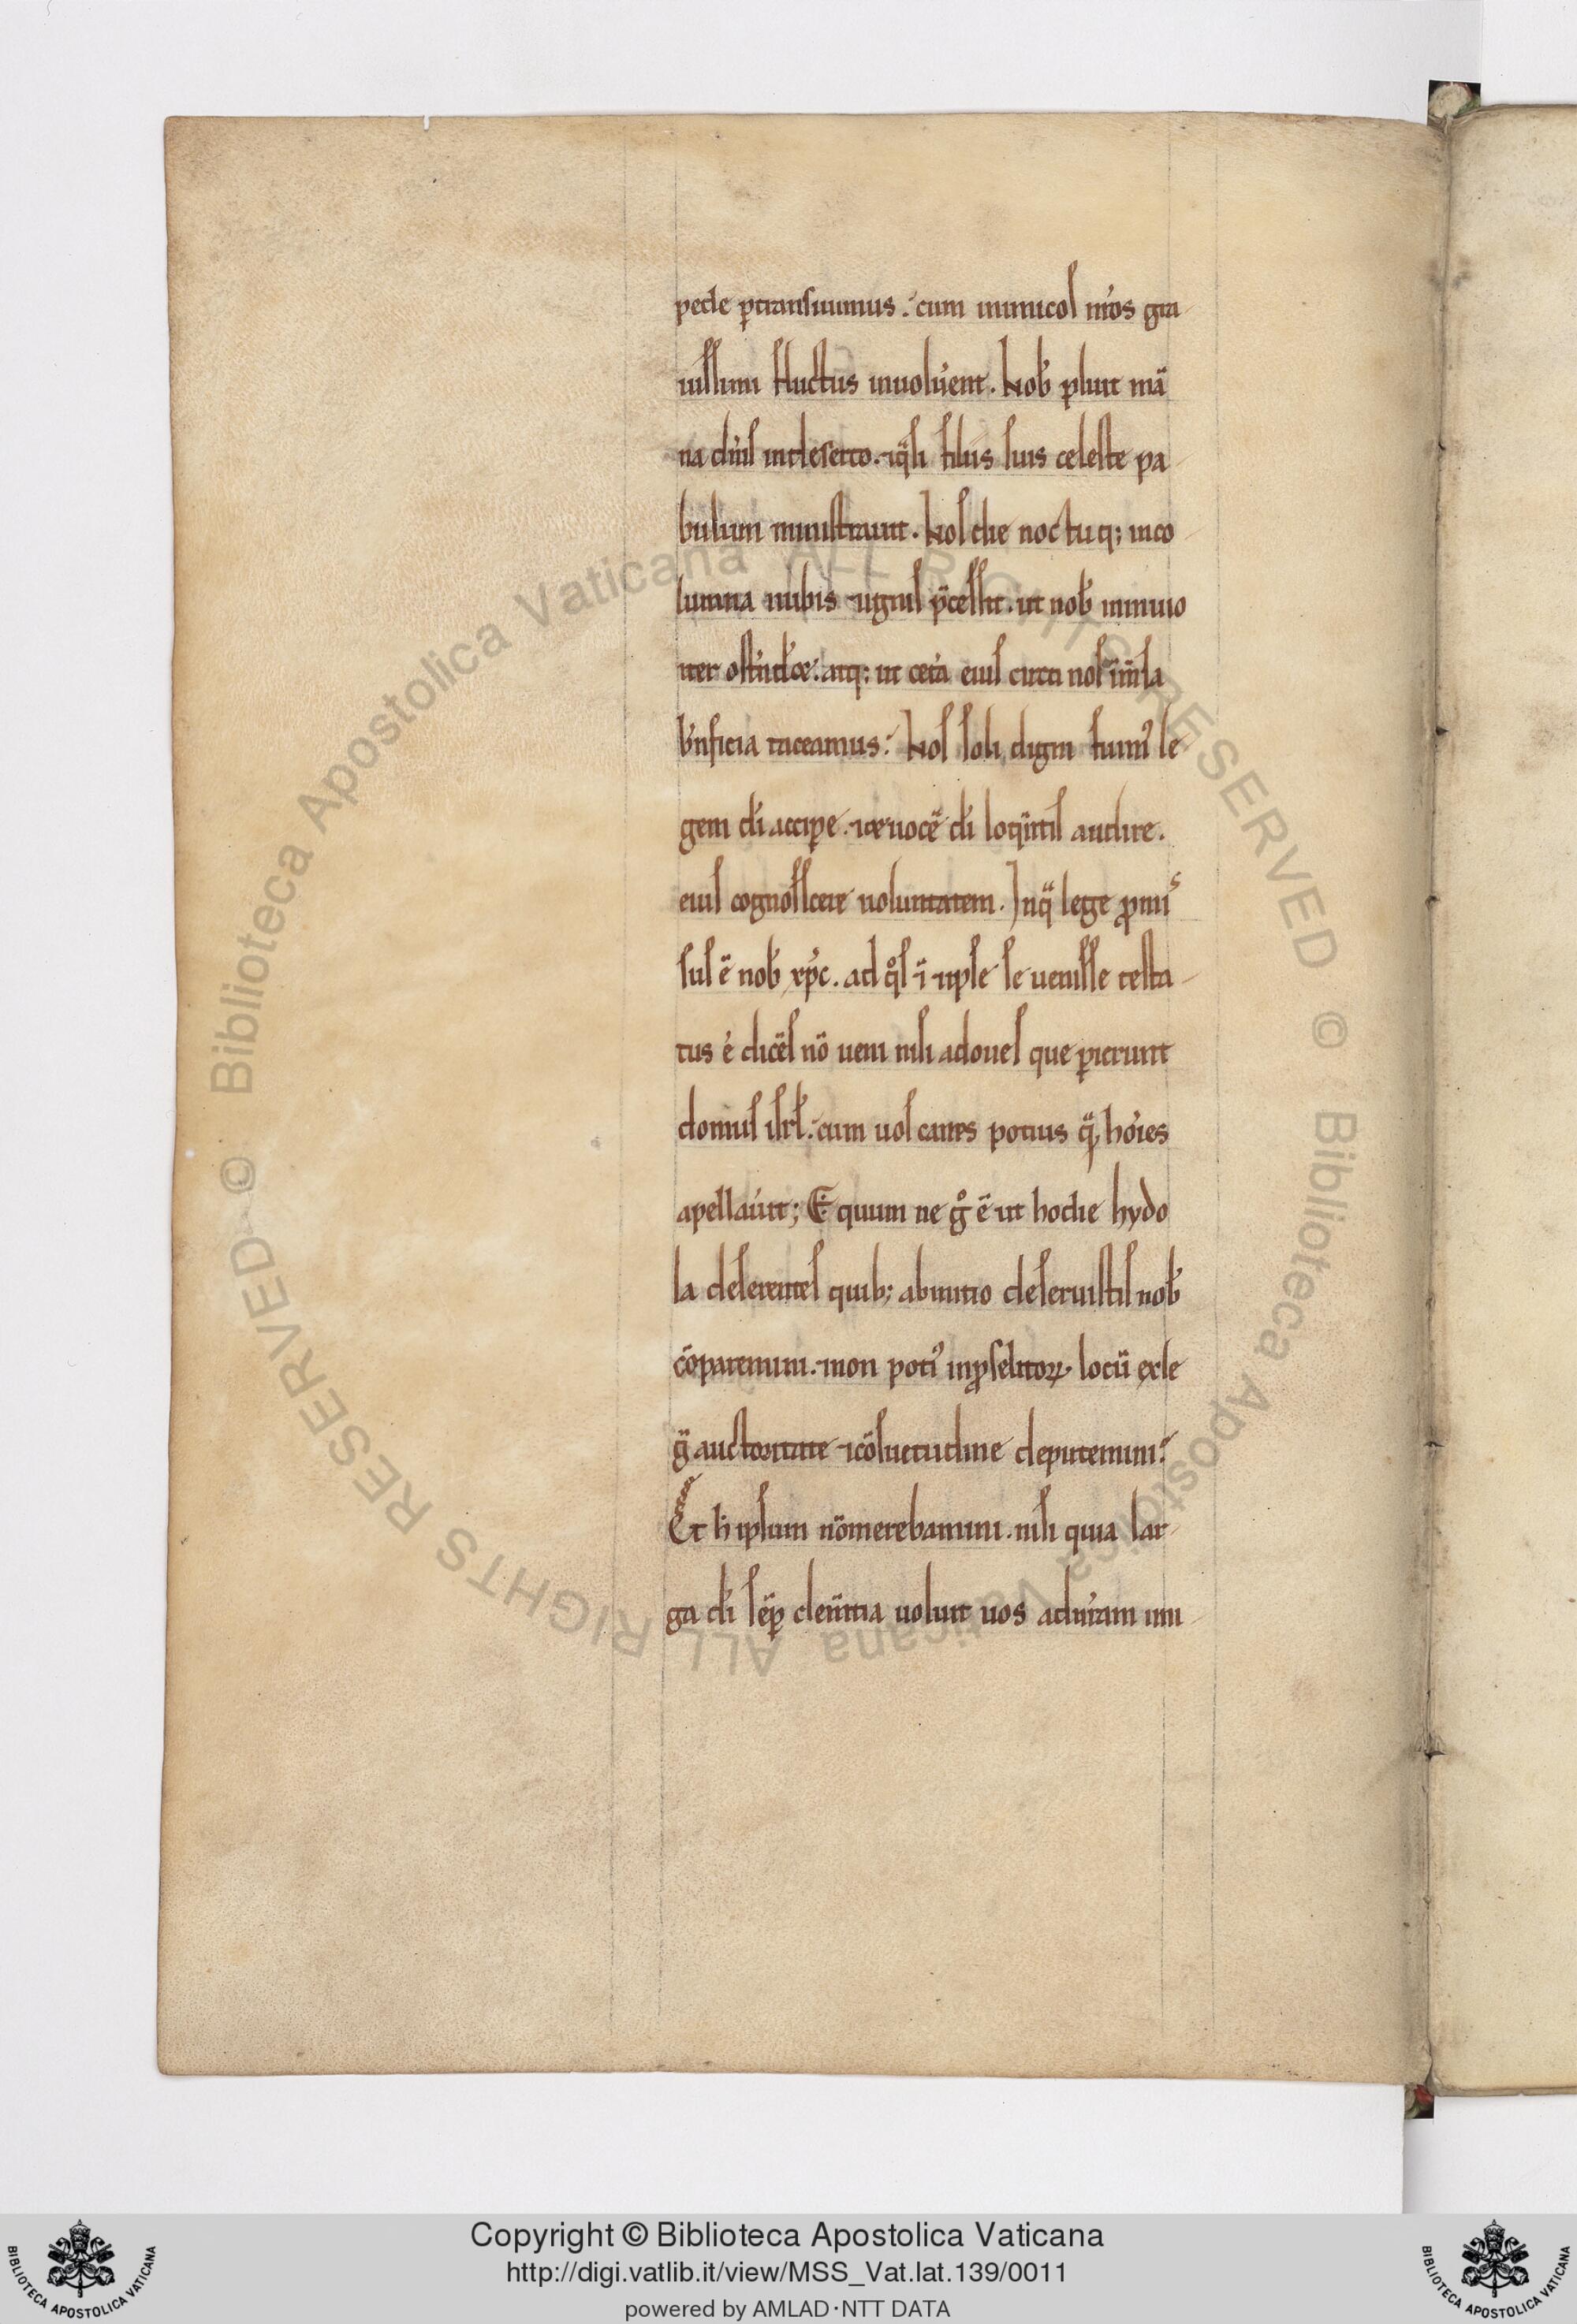 pede ꝑtransiuimus. cum inimicos nr̄os gra
uissimi fluctus inuoluerent. Nob̄ pluit mā
na dn̄s in deserto. ⁊ q̄si filiis suis celeste pa
bulum ministrauit. Nos die noctuq; in co
lumna nubis ⁊ ignis p̄cessit. ut nob̄ in inuio
iter ostend̄et. atq; ut cet̄a eius circa nos inm̄sa
b̄nficia taceamus. Nos soli digni fuim' le
gem dī accip̄e. ⁊ uocē dī loq̄ntis audire.
eius cognoscere uoluntatem. In q̄ lege ꝓmi
sus ē nob̄ xp̄c. ad q̊s ⁊ ipse se uenisse testa
tus ē dicēs nō ueni nisi ad oues que ꝑierunt
domus isrl̄. cum uos canes potius q̄ hōies
apellauit; Equum ne ḡ ē ut hodie hydo
la deserentes quib; ab initio deseruistis nob̄
cōparemini. ⁊ non poti' in ꝓselitoꝝ locū ex le
ḡ auctoritate ⁊ cōsuetudine deputemini?
Et h̄ ipsum nō merebamini. nisi quia lar
ga dī sēꝑ clem̄tia uoluit uos ad nr̄am imi
Copyright © Biblioteca Apostolica Vaticana
http://digi.vatlib.it/view/MSS_Vat.lat.139/0011
powered by AMLAD·NTT DATA
BIBLIOTECA APOSTOLICA VATICANA
BIBLIOTECA APOSTOLICA VATICANA
© Biblioteca Apostolica Vaticana ALL RIGHTS RESERVED © Biblioteca Apostolica Vaticana ALL RIGHTS RESERVED